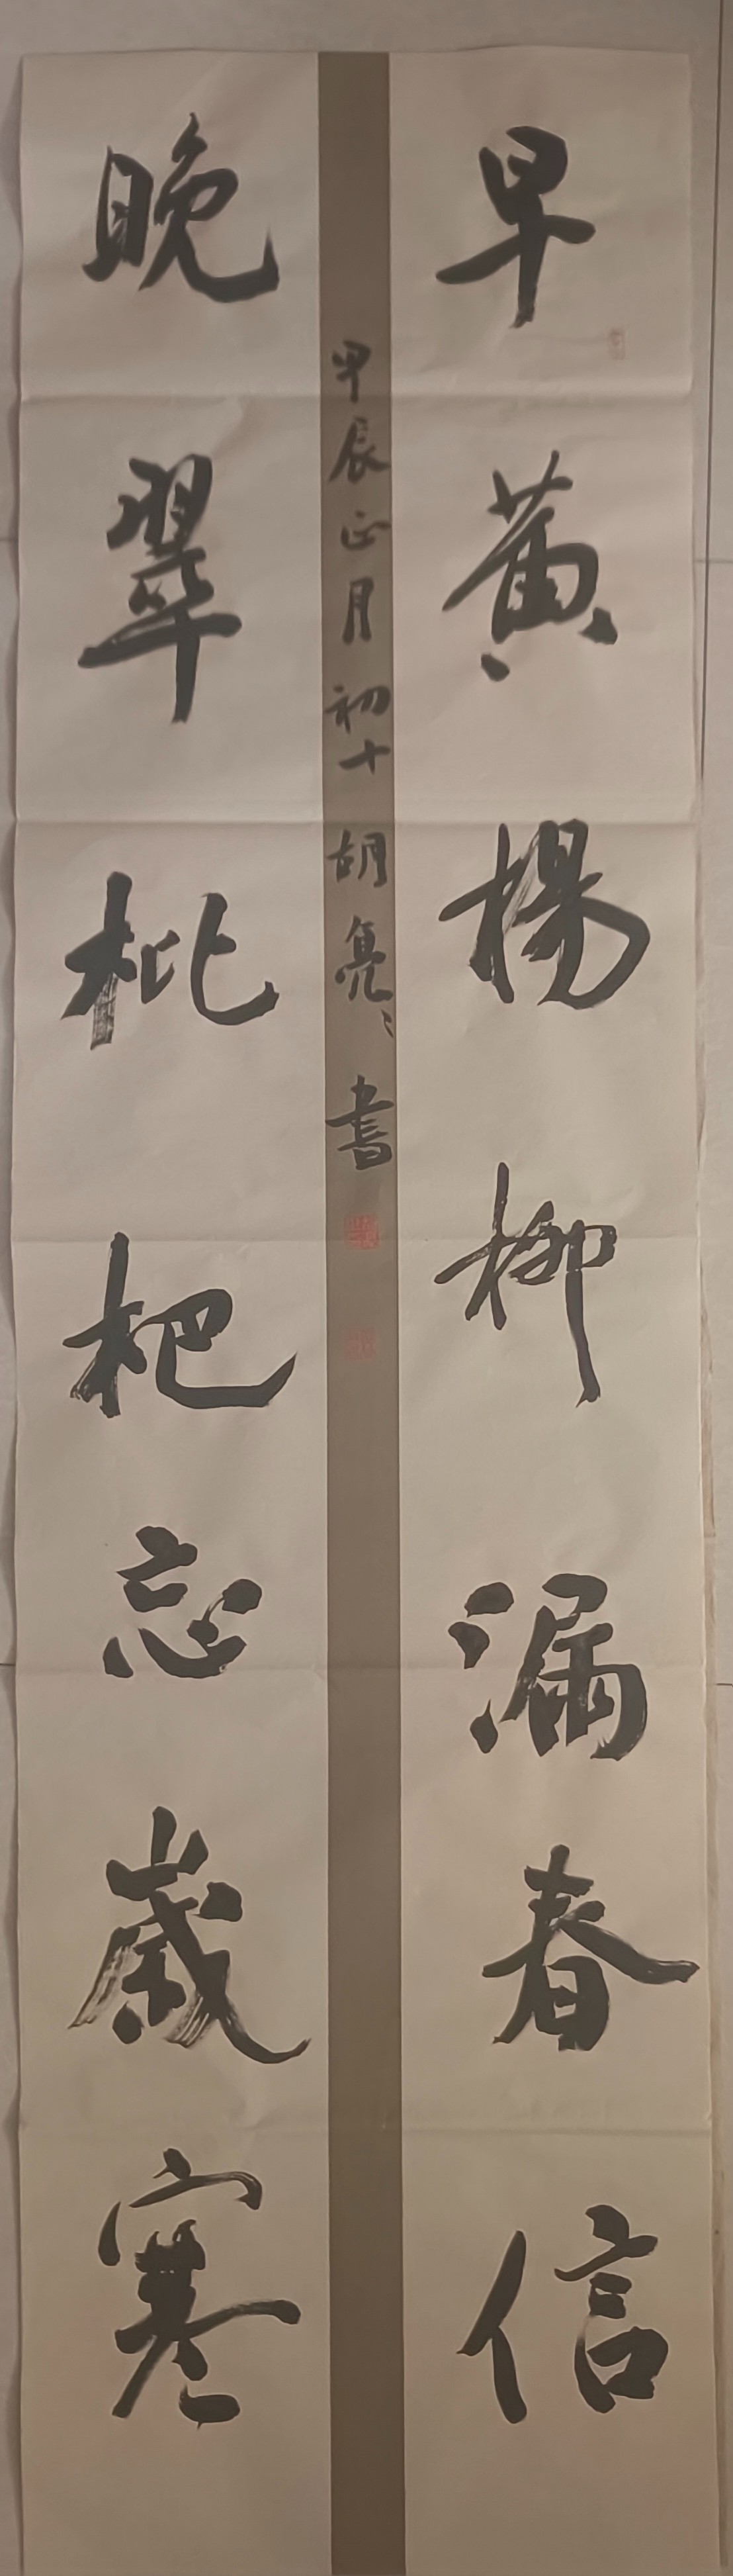 早黃楊柳漏春信
甲辰正月初十胡亮亮書
晚翠枇杷忘歲寒